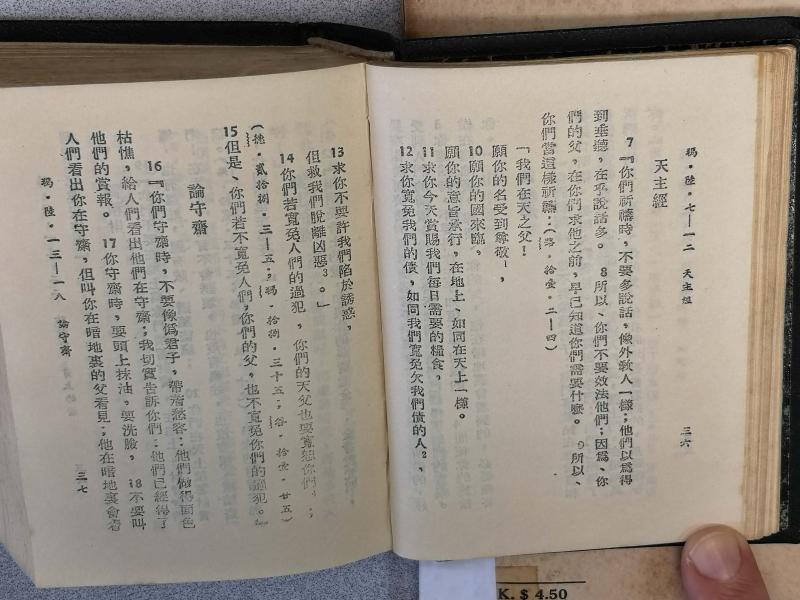 瑪・陸・七—一二 天主經 三六
天主經
7『你們祈禱時，不要多說話，像外教人一樣；他們以爲得
到垂聽，在乎說話多。8所以、你們不要效法他們；因爲、你
們的父，在你們求他之前，早已知道你們需要什麼。9所以、
你們當這樣祈禱：(路・拾壹・二—四)
「我們在天之父！
願你的名受到尊敬1，
10願你的國來臨，
願你的意旨承行，在地上、如同在天上一樣。
11求你今天賞賜我們每日需要的糧食，
12求你寬免我們的債，如同我們寬免欠我們債的人2，
13求你不要許我們陷於誘惑，
但救我們脫離凶惡3。」
14你們若寬免人們的過犯，你們的天父也要寬恕你們4；
(德・貳拾捌・三—五；瑪・拾捌・三十五；谷・拾壹・廿五)
15但是、你們若不寬免人們，你們的父，也不寬免你們的過犯。』
論守齋
16『你們守齋時，不要像僞君子，帶着愁容：他們做得面色
枯憔，給人們看出他們在守齋；我切實告訴你們：他們已經得了
他們的賞報。17你守齋時，要頭上抹油，要洗臉，18不要叫
人們看出你在守齋，但叫你在暗地裏的父看見；他在暗地裏會看
瑪・陸・一三—一八 論守齋 三七
K. $ 4.50